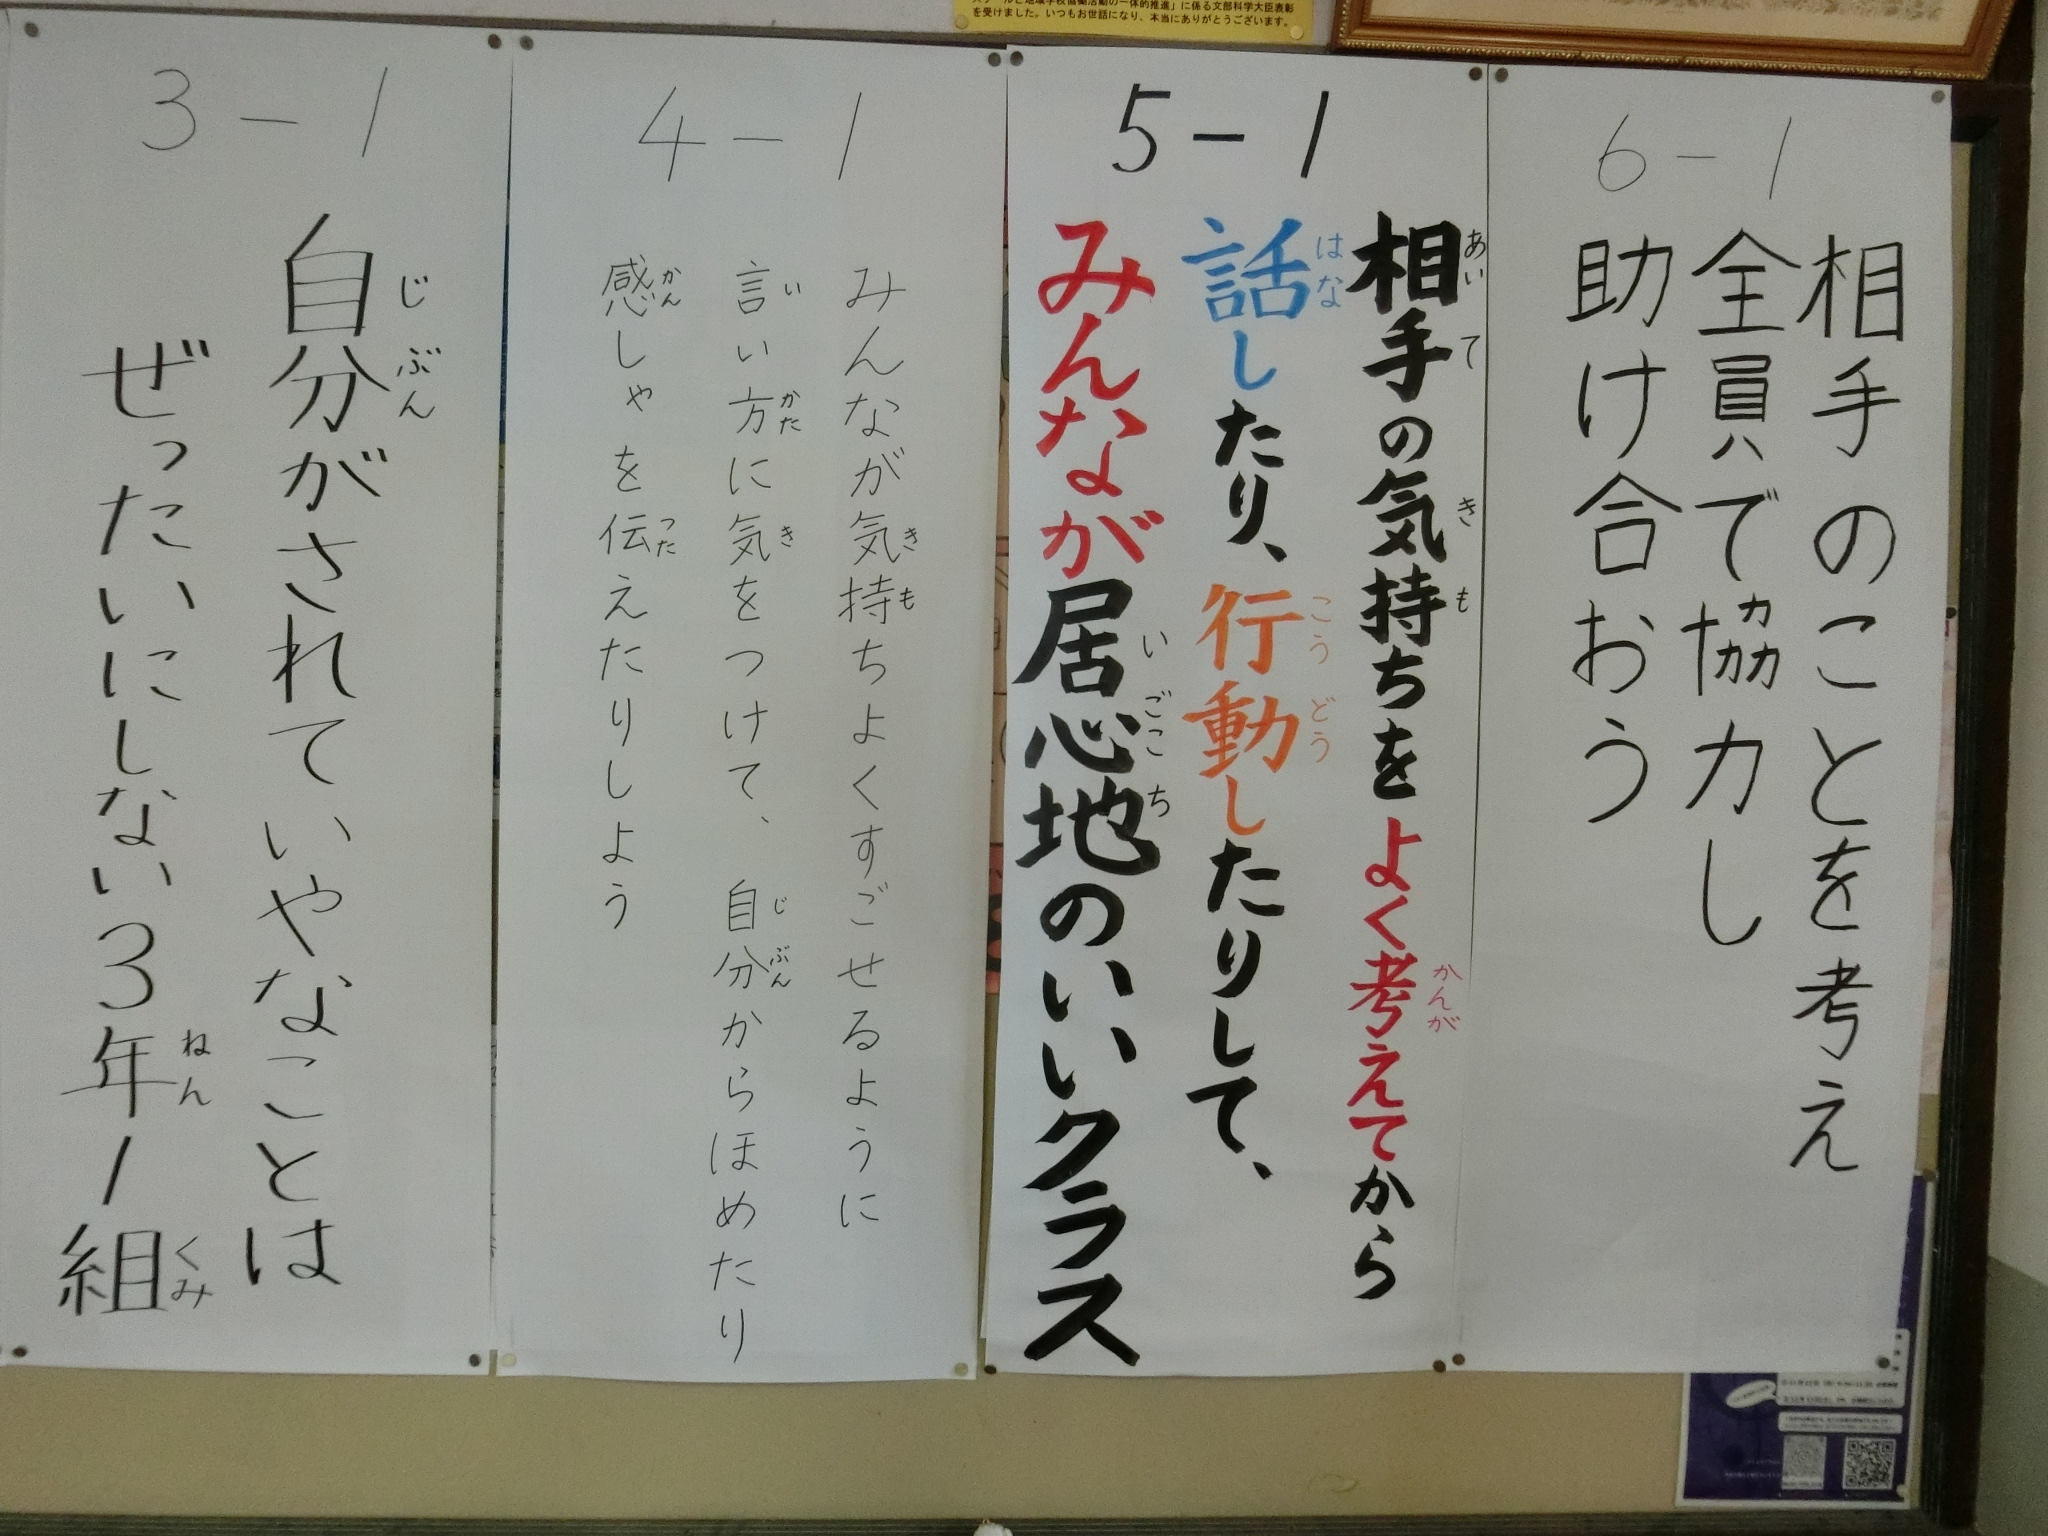 スクールと地域学校協働活動の一体的推進」に係る文部科学大臣表彰
を受けました。いつもお世話になり、本当にありがとうございます。
6-1
相手のことを考え
全員で協力し
助け合おう
5-1
相手の気持ちをよく考えてから
あいて き も かんが
話したり、行動したりして、
はな こうどう
みんなが居心地のいいクラス
い ごこ ち
4-1
みんなが気持ちよくすごせるように
き も
言い方に気をつけて、自分からほめたり
い かた き じ ぶん
感しゃを伝えたりしよう
かん つた
3-1
自分がされていやなことは
じ ぶん
ぜったいにしない3年1組
ねん くみ